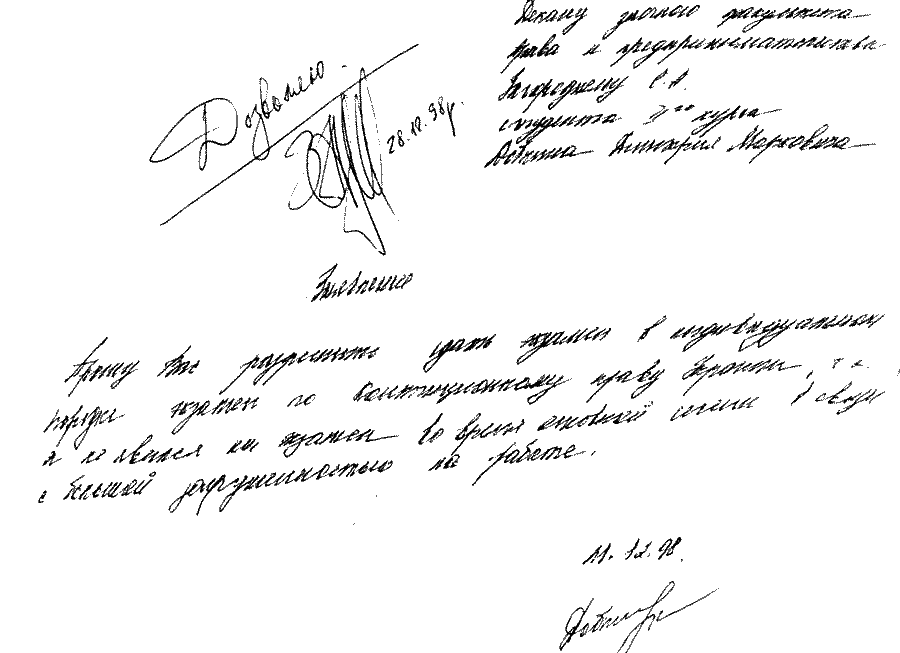 Декану заочного факультета
права и предпринимательства
Загороднему С.А.
студента 3го курса
Добкина Дмитрия Марковича
Дозволяю.
28.12.98р.
Заявление
Прошу Вас разрешить сдать экзамен в индивидуальном
порядке экзамен по Конституционному праву Украины, т.к.
я не явился на экзамен во время основной сессии в связи
с большой загруженностью на работе.
11.12.98.